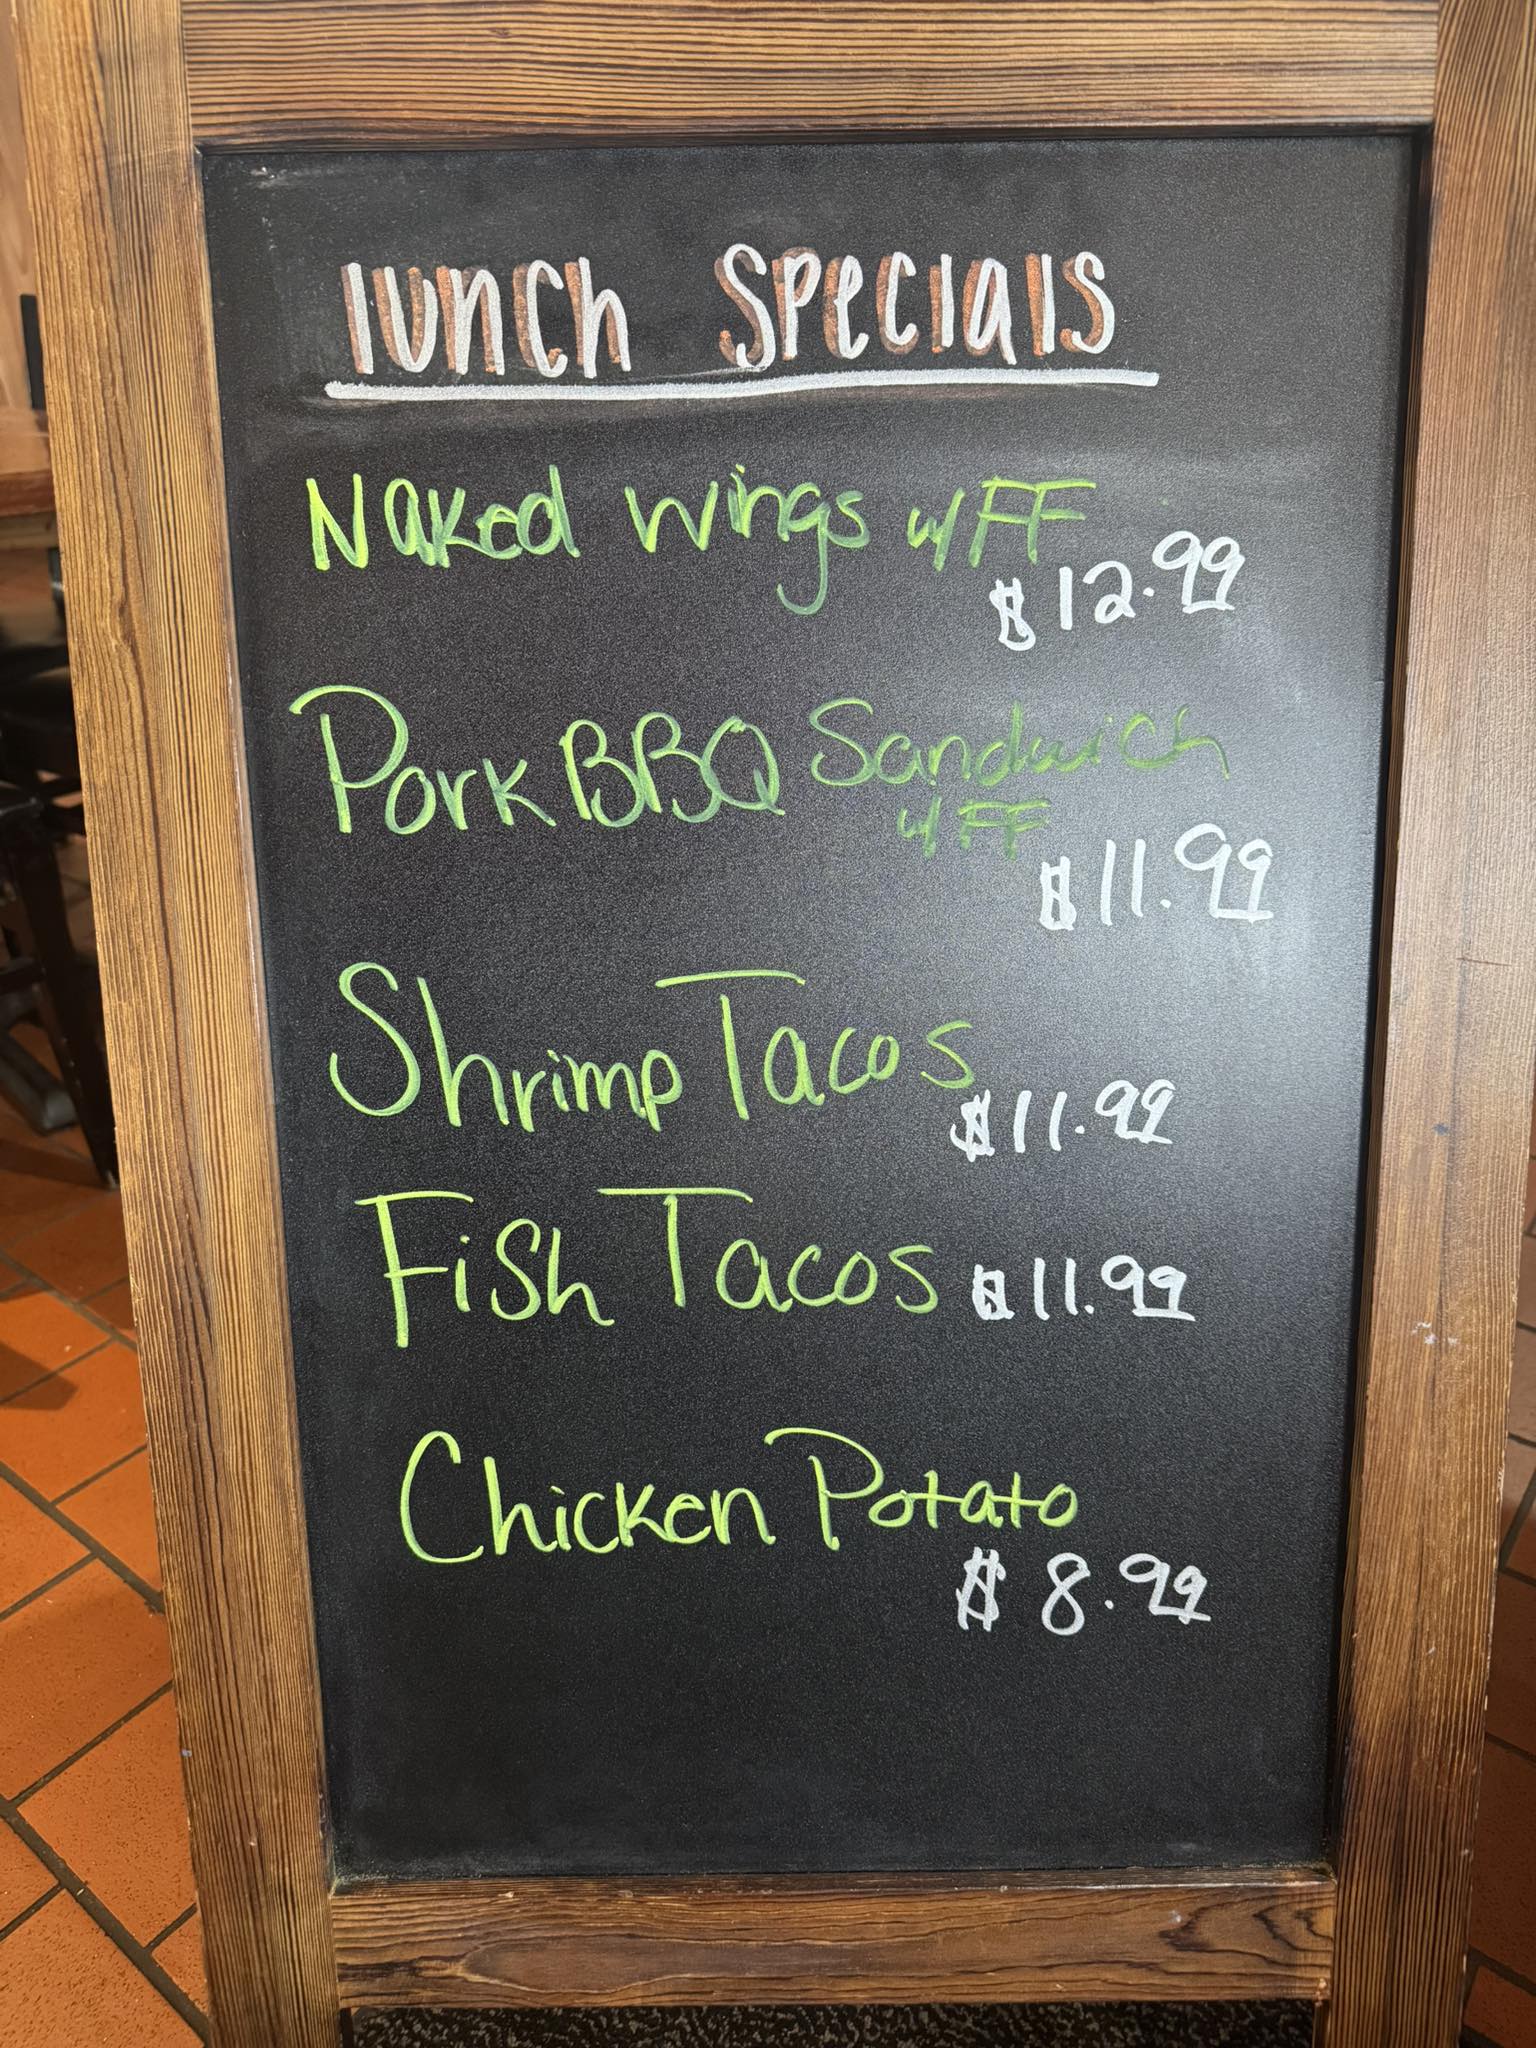 lunch specials
Naked Wings w/ FF
$12.99
Pork BBQ Sandwich
w/ FF
$11.99
Shrimp Tacos
$11.99
Fish Tacos $11.99
Chicken Potato
$8.99